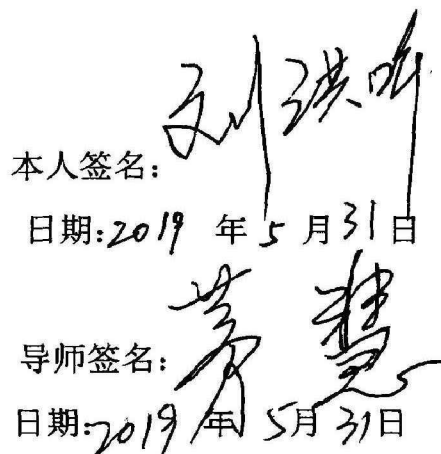 本人签名：刘琪
日期：2019 年 5 月 31 日
导师签名：慧
日期：2019 年 5 月 31 日